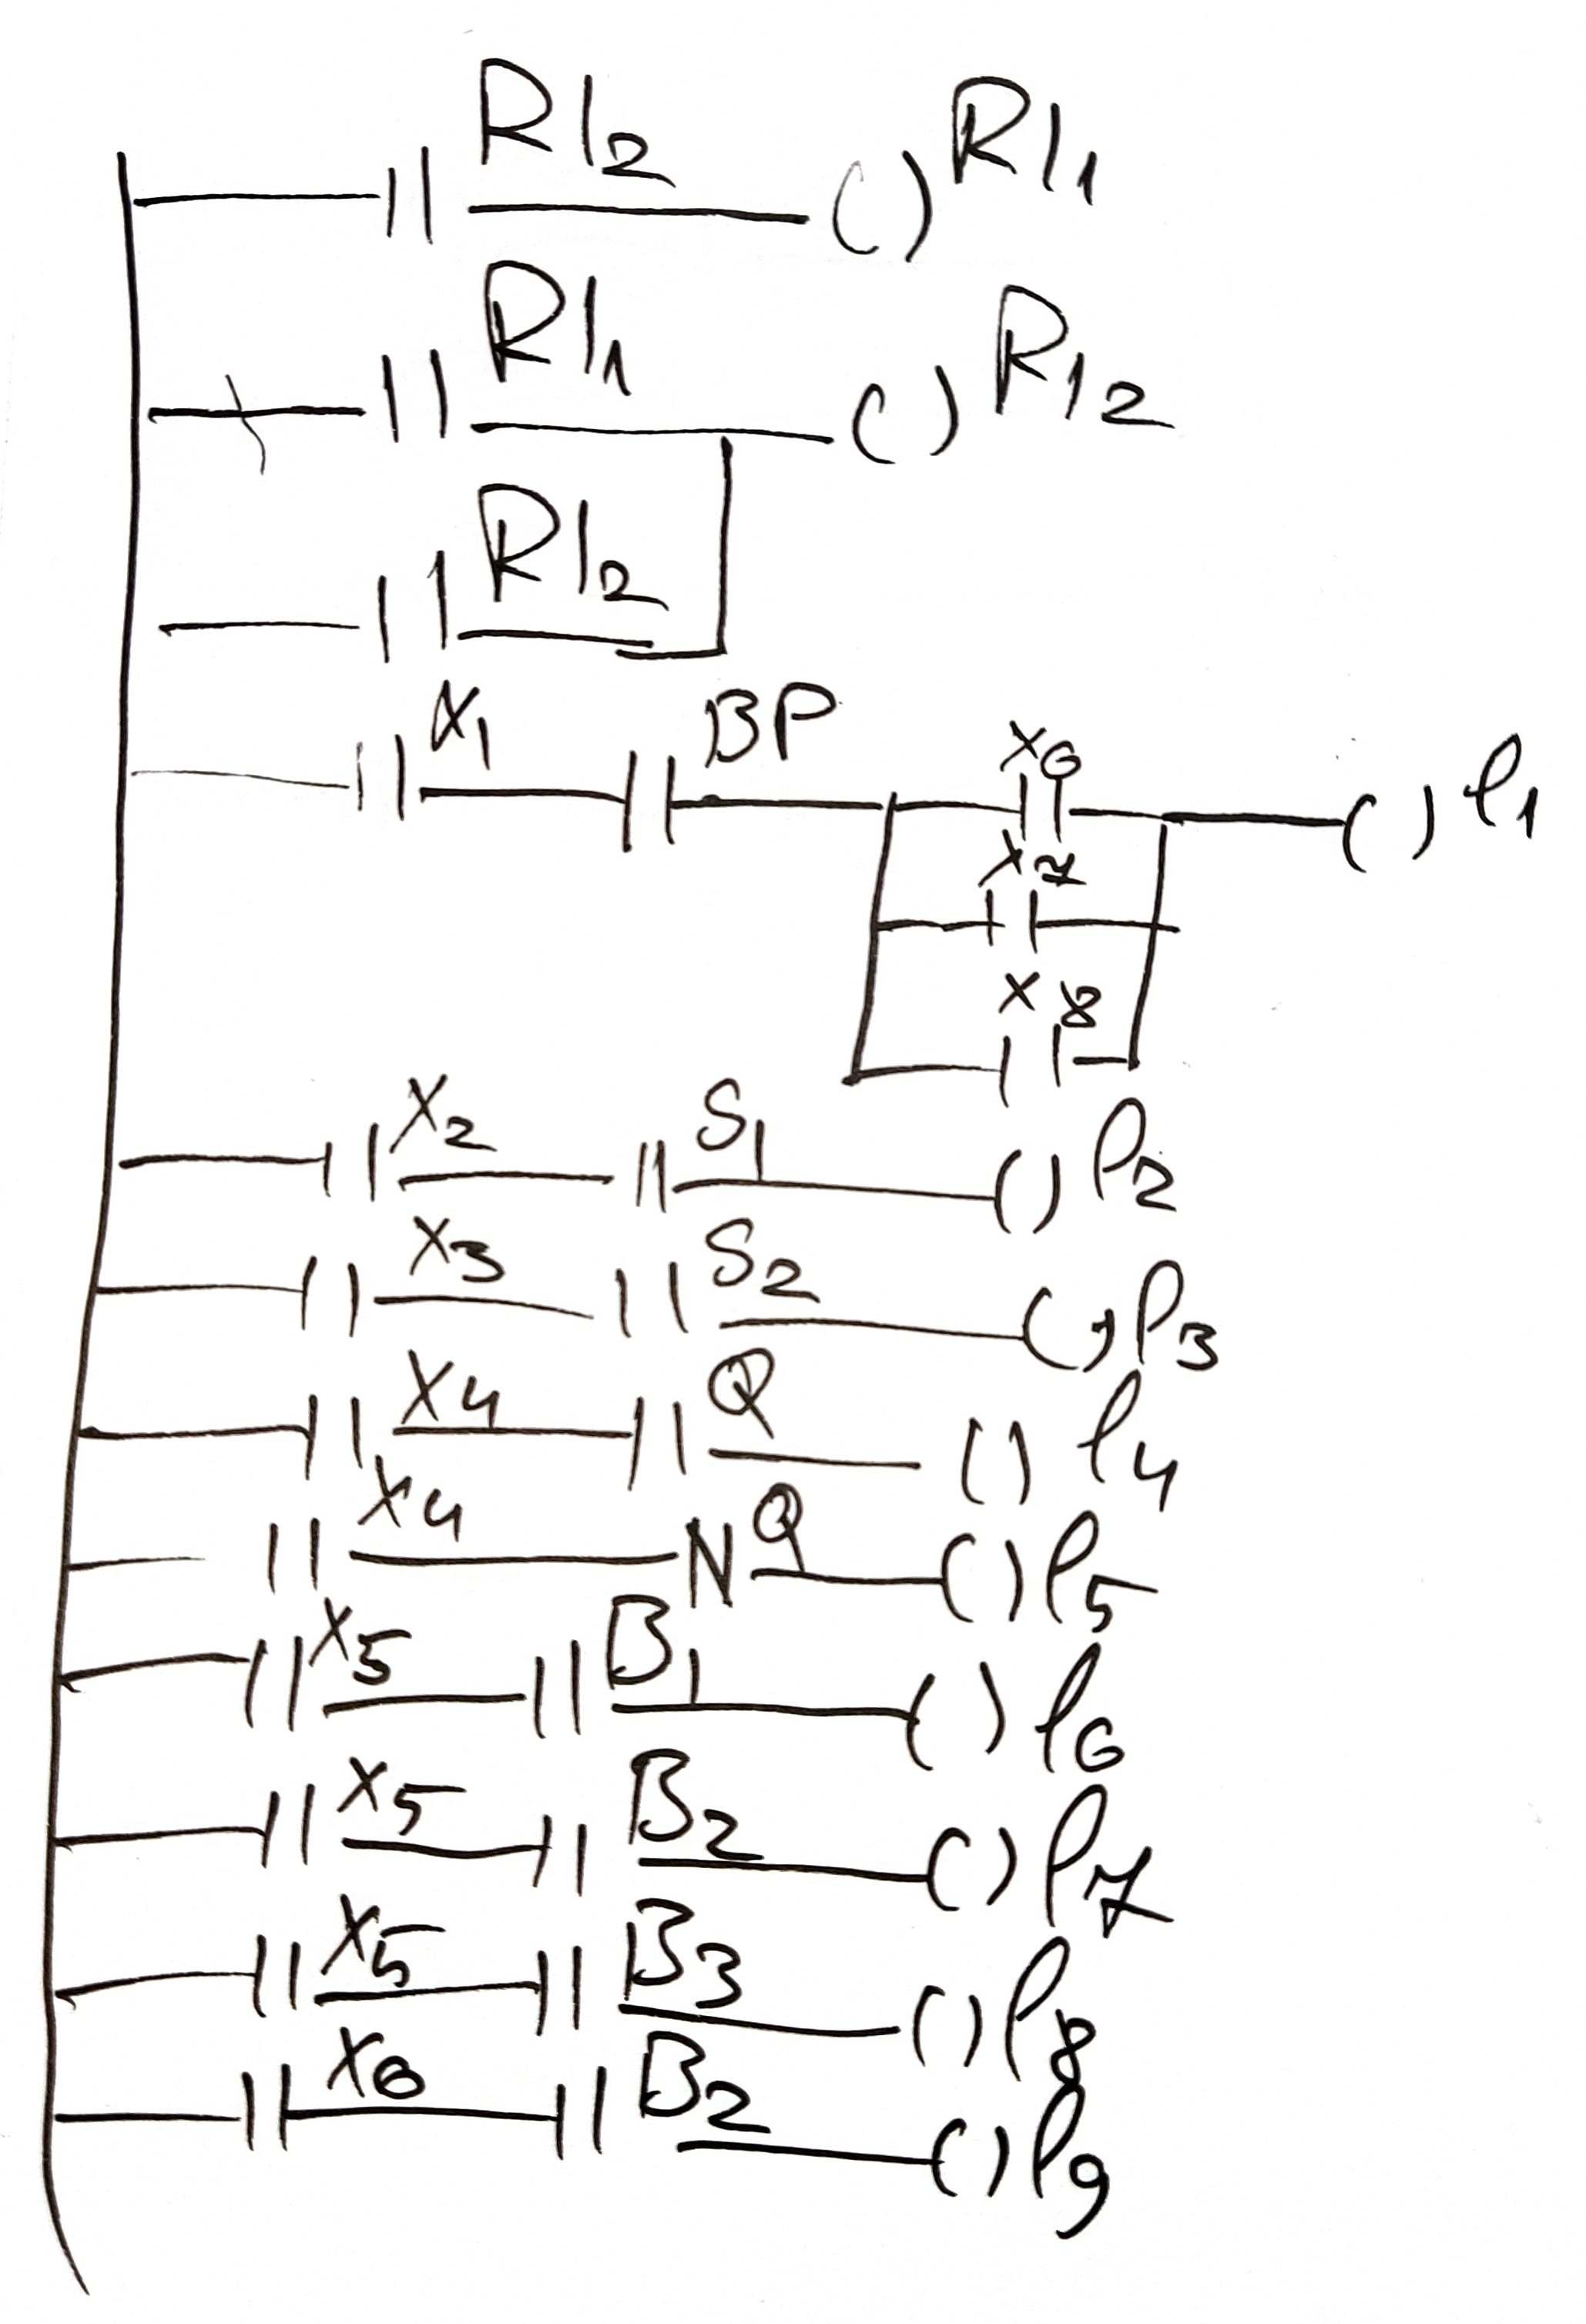 RI2 ( ) RI1
RI1 ( ) RI2
RI2
X1 BP X6 ( ) l1
X7
X8
X2 S1 ( ) l2
X3 S2 ( ) l3
X4 Q ( ) l4
X4 N Q ( ) l5
X5 B1 ( ) l6
X5 B2 ( ) l7
X5 B3 ( ) l8
X6 B2 ( ) l9